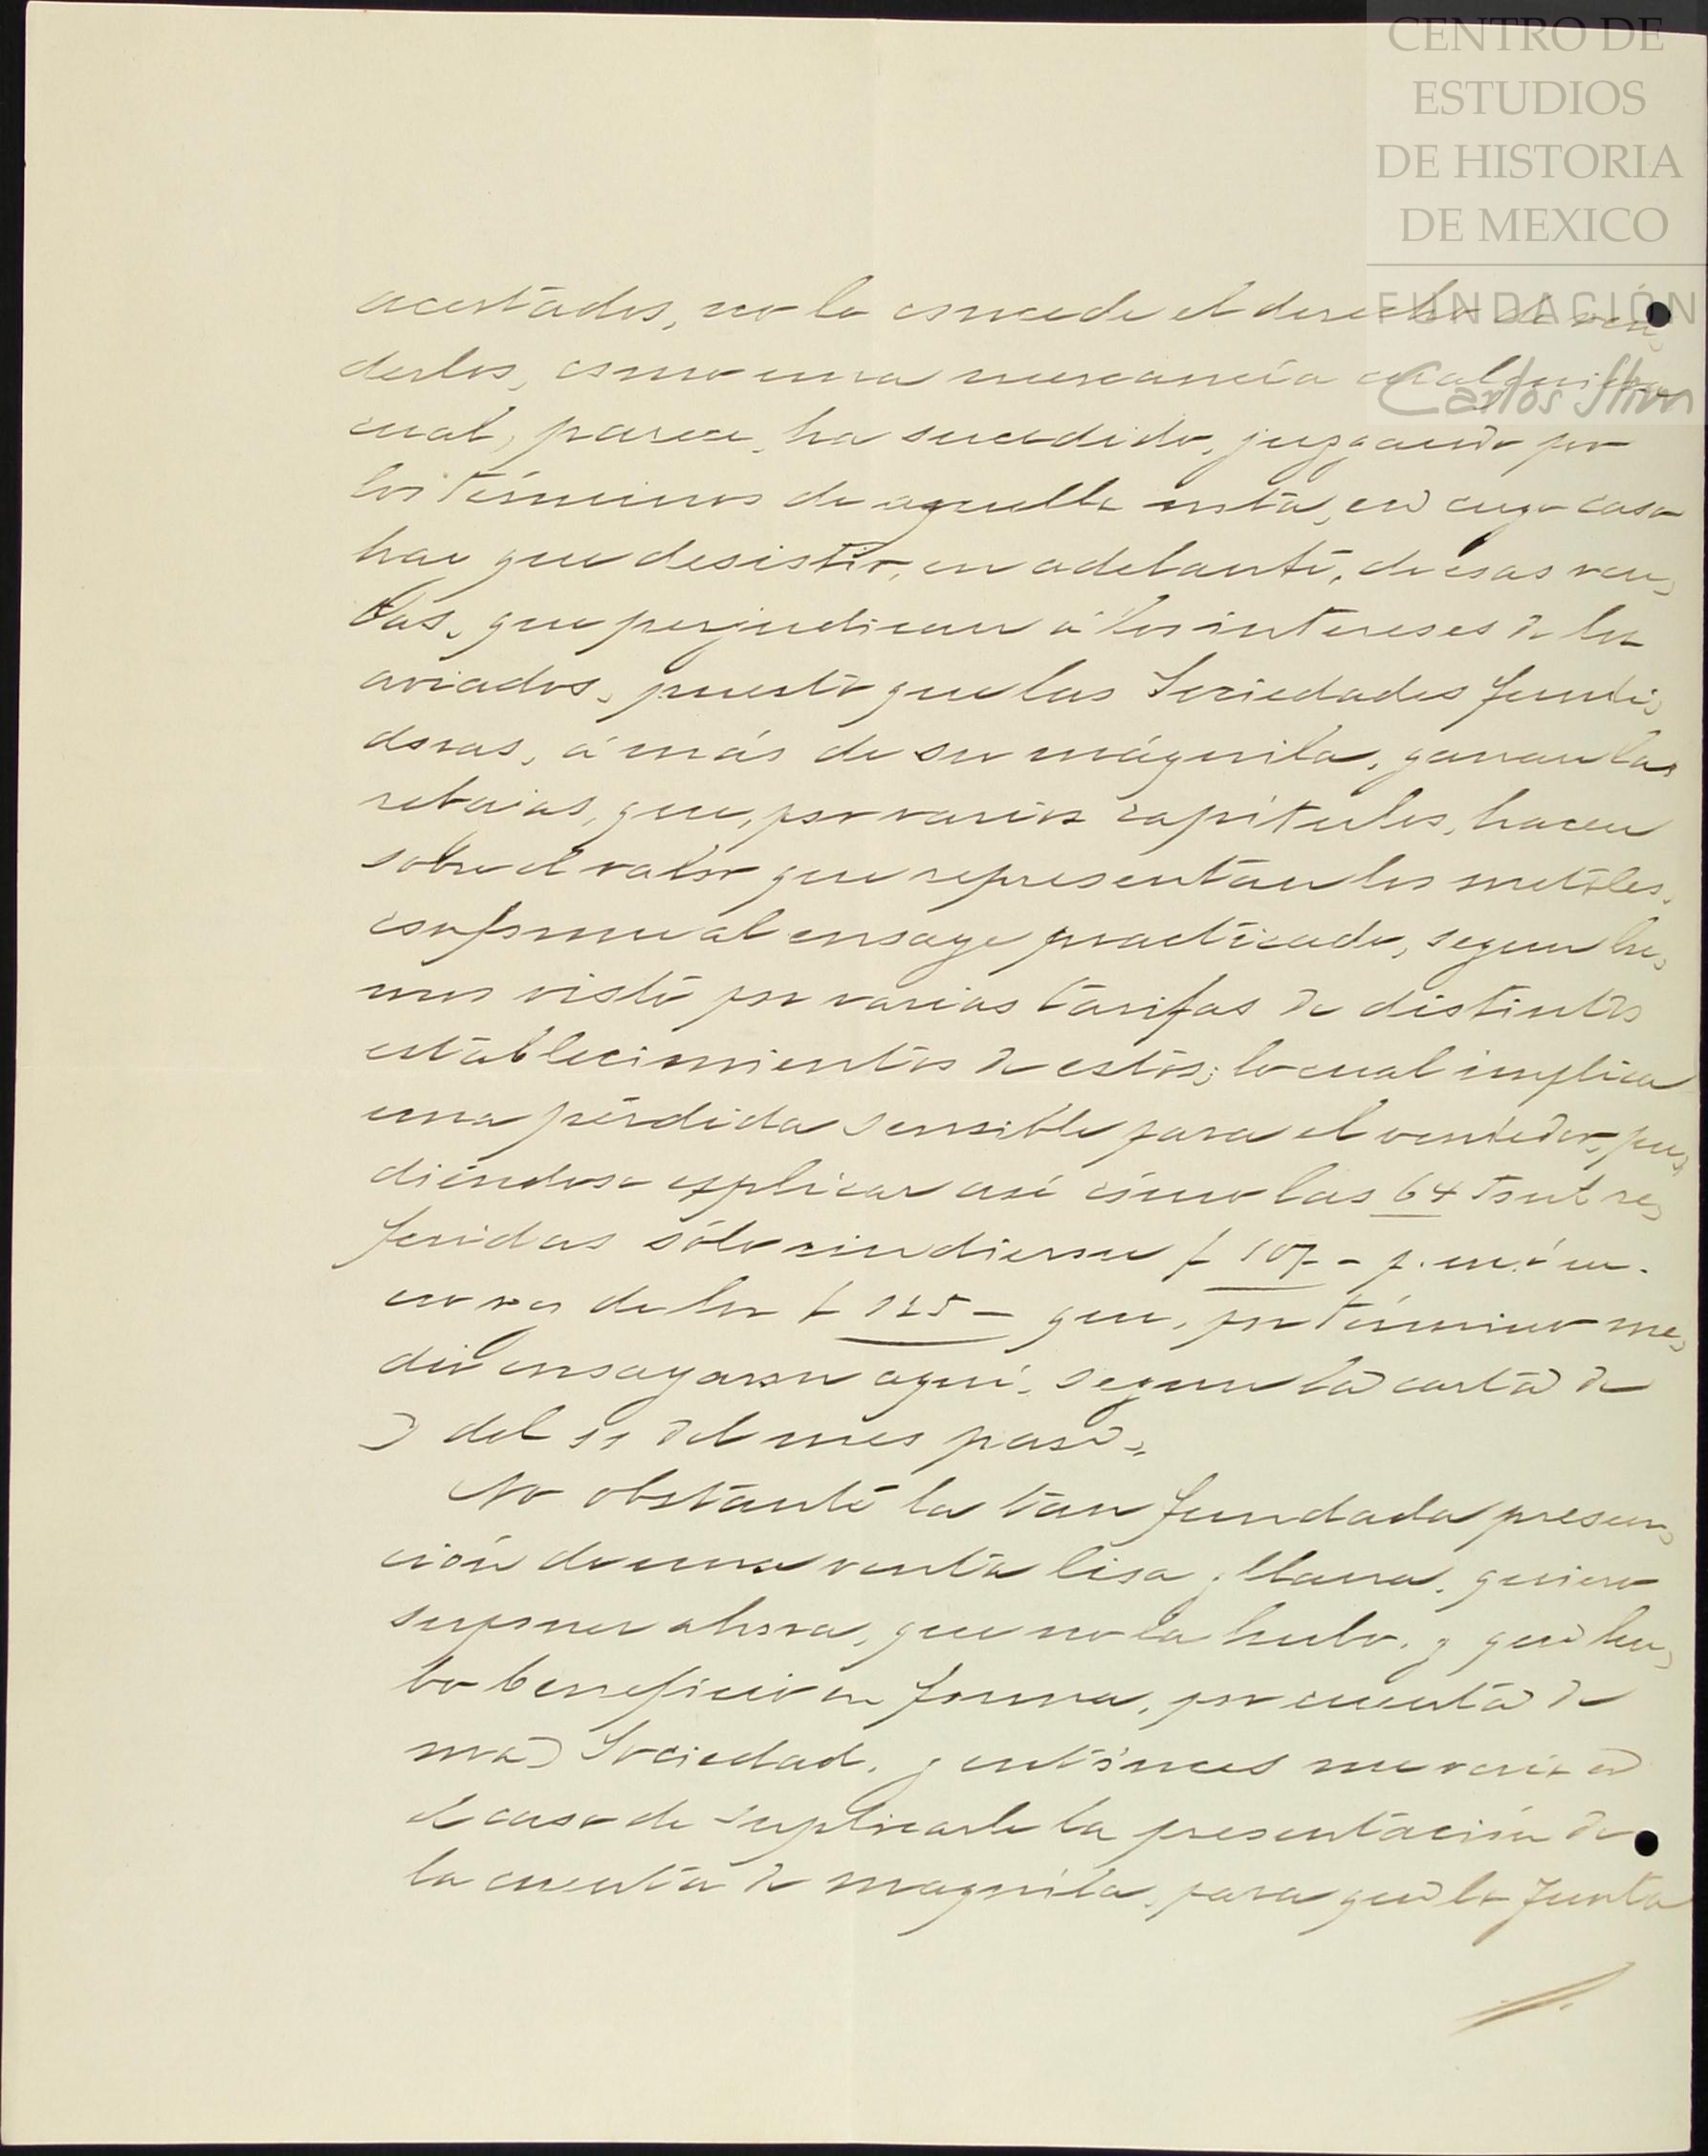 CENTRO DE
ESTUDIOS
DE HISTORIA
DE MEXICO
FUNDACIÓN
Carlos Slim
acertados, no le concede el derecho de ven,
derlos, como una mercancía cualquiera
cual, parece, ha sucedido, juzgando por
los términos de aquella nota, en cuyo caso
hay que desistir, en adelante, de esas ven,
tas, que perjudican á los intereses de los
aviados, puesto que las Sociedades fundi,
doras, á más de su máquila, ganan las
rebajas, que, por varios capítulos, hacen
sobre el valor que representan los metales,
conforme al ensaye practicado, segun he,
mos visto por varias tarifas de distintos
establecimientos de estos; lo cual implica
una pérdida sensible para el vendedor, pu,
diéndose explicar así cómo las 64 Tonl re,
feridas sólo rindieron $ 107.-
en vez de los $ 125 - que, por término me,
dio ensayaron aquí, segun la carta de
del 11 del mes pasdo.
No obstante la tan fundada presun,
ción de una venta lisa y llana, quiero
suponer ahora, que no la hubo, y que hu,
bo beneficio en forma, por cuenta de
nra Sociedad, y entónces me veria en
el caso de suplicarle la presentación de
la cuenta de maquila, para que la Junta